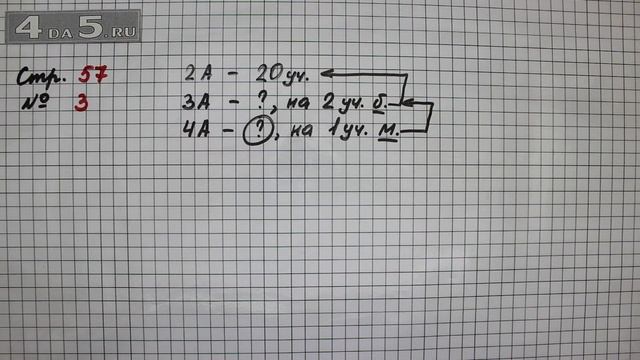 4 DA 5.RU
Стр. 57
№ 3
2А - 20 уч.
3А - ?, на 2 уч. б.
4А - ?, на 1 уч. м.